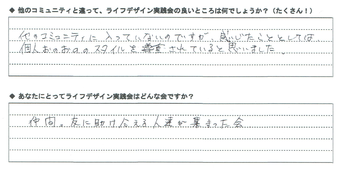 ◆ 他のコミュニティと違って、ライフデザイン実践会の良いところは何でしょうか？（たくさん！）
他のコミュニティに入っていないのですが、感じたこととしては
個人おのおののスタイルを尊重されていると思いました。
◆ あなたにとってライフデザイン実践会はどんな会ですか？
仲間。友に助け合える人達が集まった会